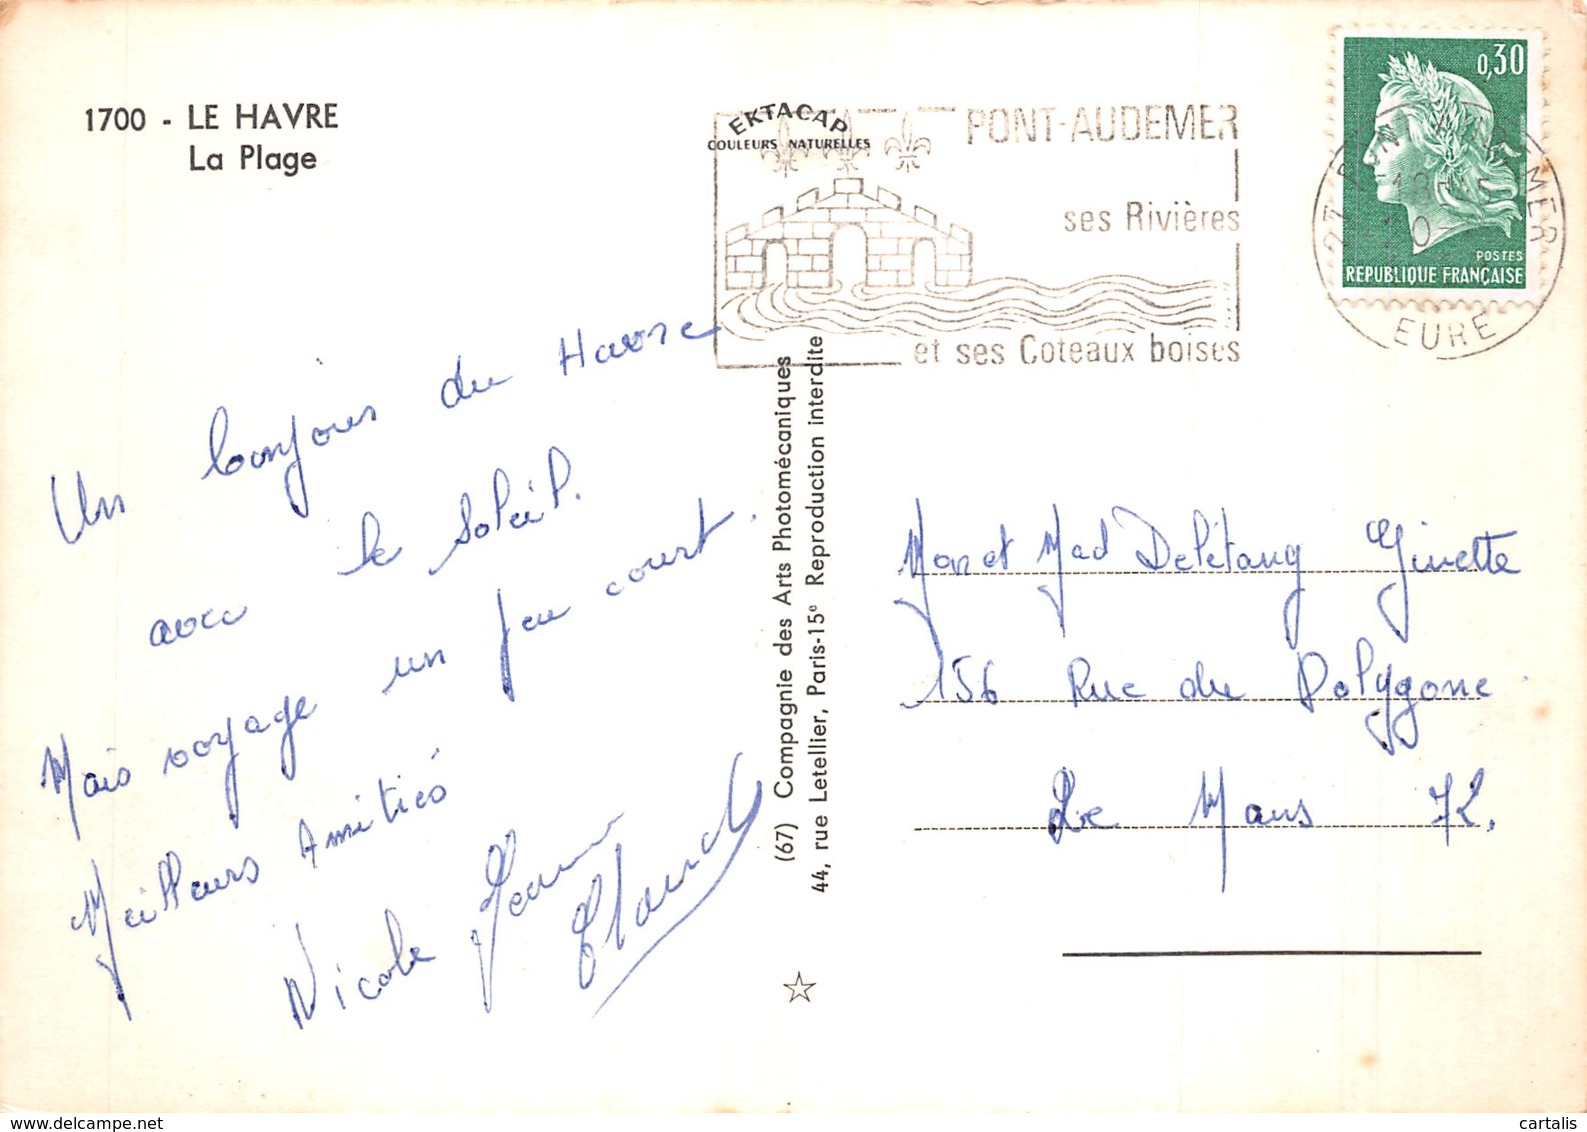 1700 - LE HAVRE
La Plage
EKTACAP
COULEURS NATURELLES
PONT-AUDEMER
ses Rivières
et ses Coteaux boisés
0,30
POSTES
REPUBLIQUE FRANÇAISE
27 PONT-AUDEMER
EURE
Un bonjour du Havre
avec le Soleil.
Mais voyage un peu court.
Meilleurs Amitiés
Nicole Jeanne
Claude
(67) Compagnie des Arts Photomécaniques
44, rue Letellier, Paris-15e Reproduction interdite
Mon et Mad Delétang Ginette
156 Rue du Polygone
Le Mans 72.
cartalis
delcampe.net